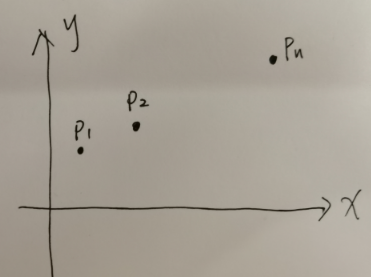 y
Pn
P2
P1
X